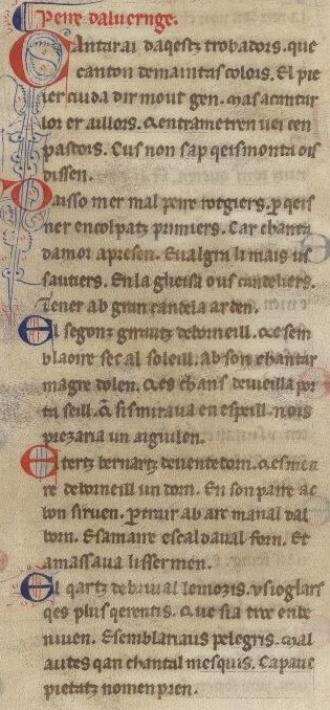 Peire daluernge.
CAntarai daqestz trobadors. que
canton de maintas colors. El pie
ier cuida dir mout gen. mas acantar
lor er aillors. Qentrametren uei cen
pastors. Cus non sap qeis monta ois
dissen.
Daisso mer mal peire rotgiers. p qeis
ner encolpatz primiers. Car chanta
damor apresen. Eualgra li mais us
sautiers. En la glieisa o us candeliers.
Tener ab gran candela arden.
El segonz girautz deborneill. qe sem
bla oire sec al soleill. ab son chantar
magre dolen. qes chans deuieilla por
ta seill. q sis miraua en espeill. nois
prezaria un aiguilen.
El tertz bernartz deuentedorn. qes men
re deborneill un dorn. En son paire ac
bon siruen. p trair ab arc manal dal
born. E sa maire escaldaual forn. Et
amassaua lissermen.
El qartz debriual lemozis. us ioglars
qes plus qerentis. que sia tro en be
niuen. E semblariaus pelegris. mal
autes qan chantal mesquis. Capauc
pietatz nomen pren.